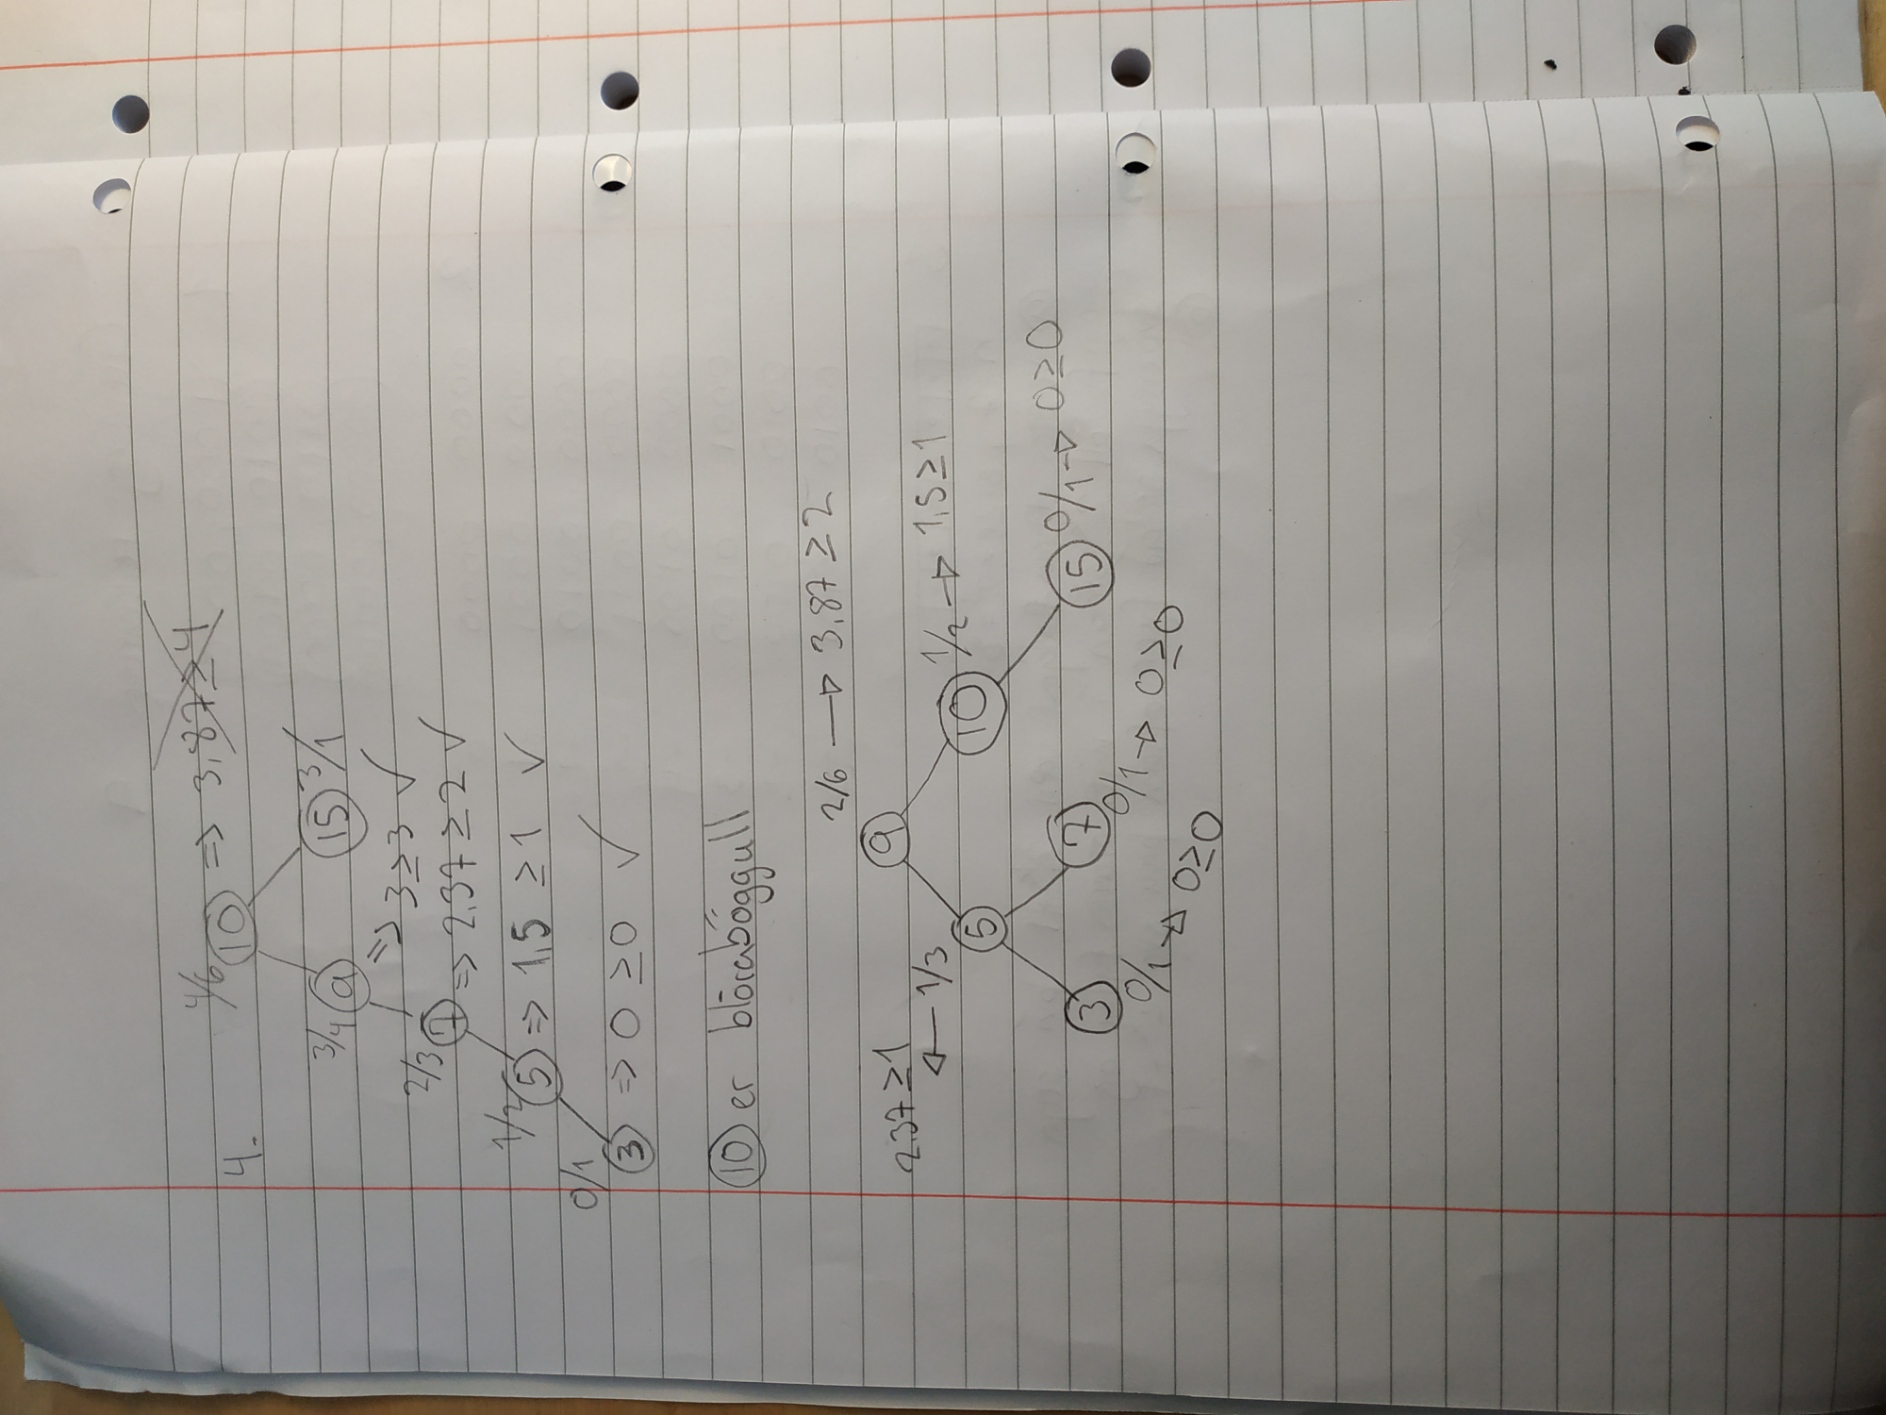 4.
4/6 10 => 3,87≥4
3/4 9 15 3/1
=> 3≥3 ✓
2/3 7 => 2,37 ≥ 2 ✓
1/2 5 => 1,5 ≥ 1 ✓
0/1
3 => 0 ≥0 ✓
10 er blóraböggull
2/6 → 3,87 ≥2
9
2,37 ≥1
← 1/3
5 10 1/2 → 1,5≥1
3 7 15 0/1→ 0≥0
0/1 → 0≥0
0/1 → 0≥0